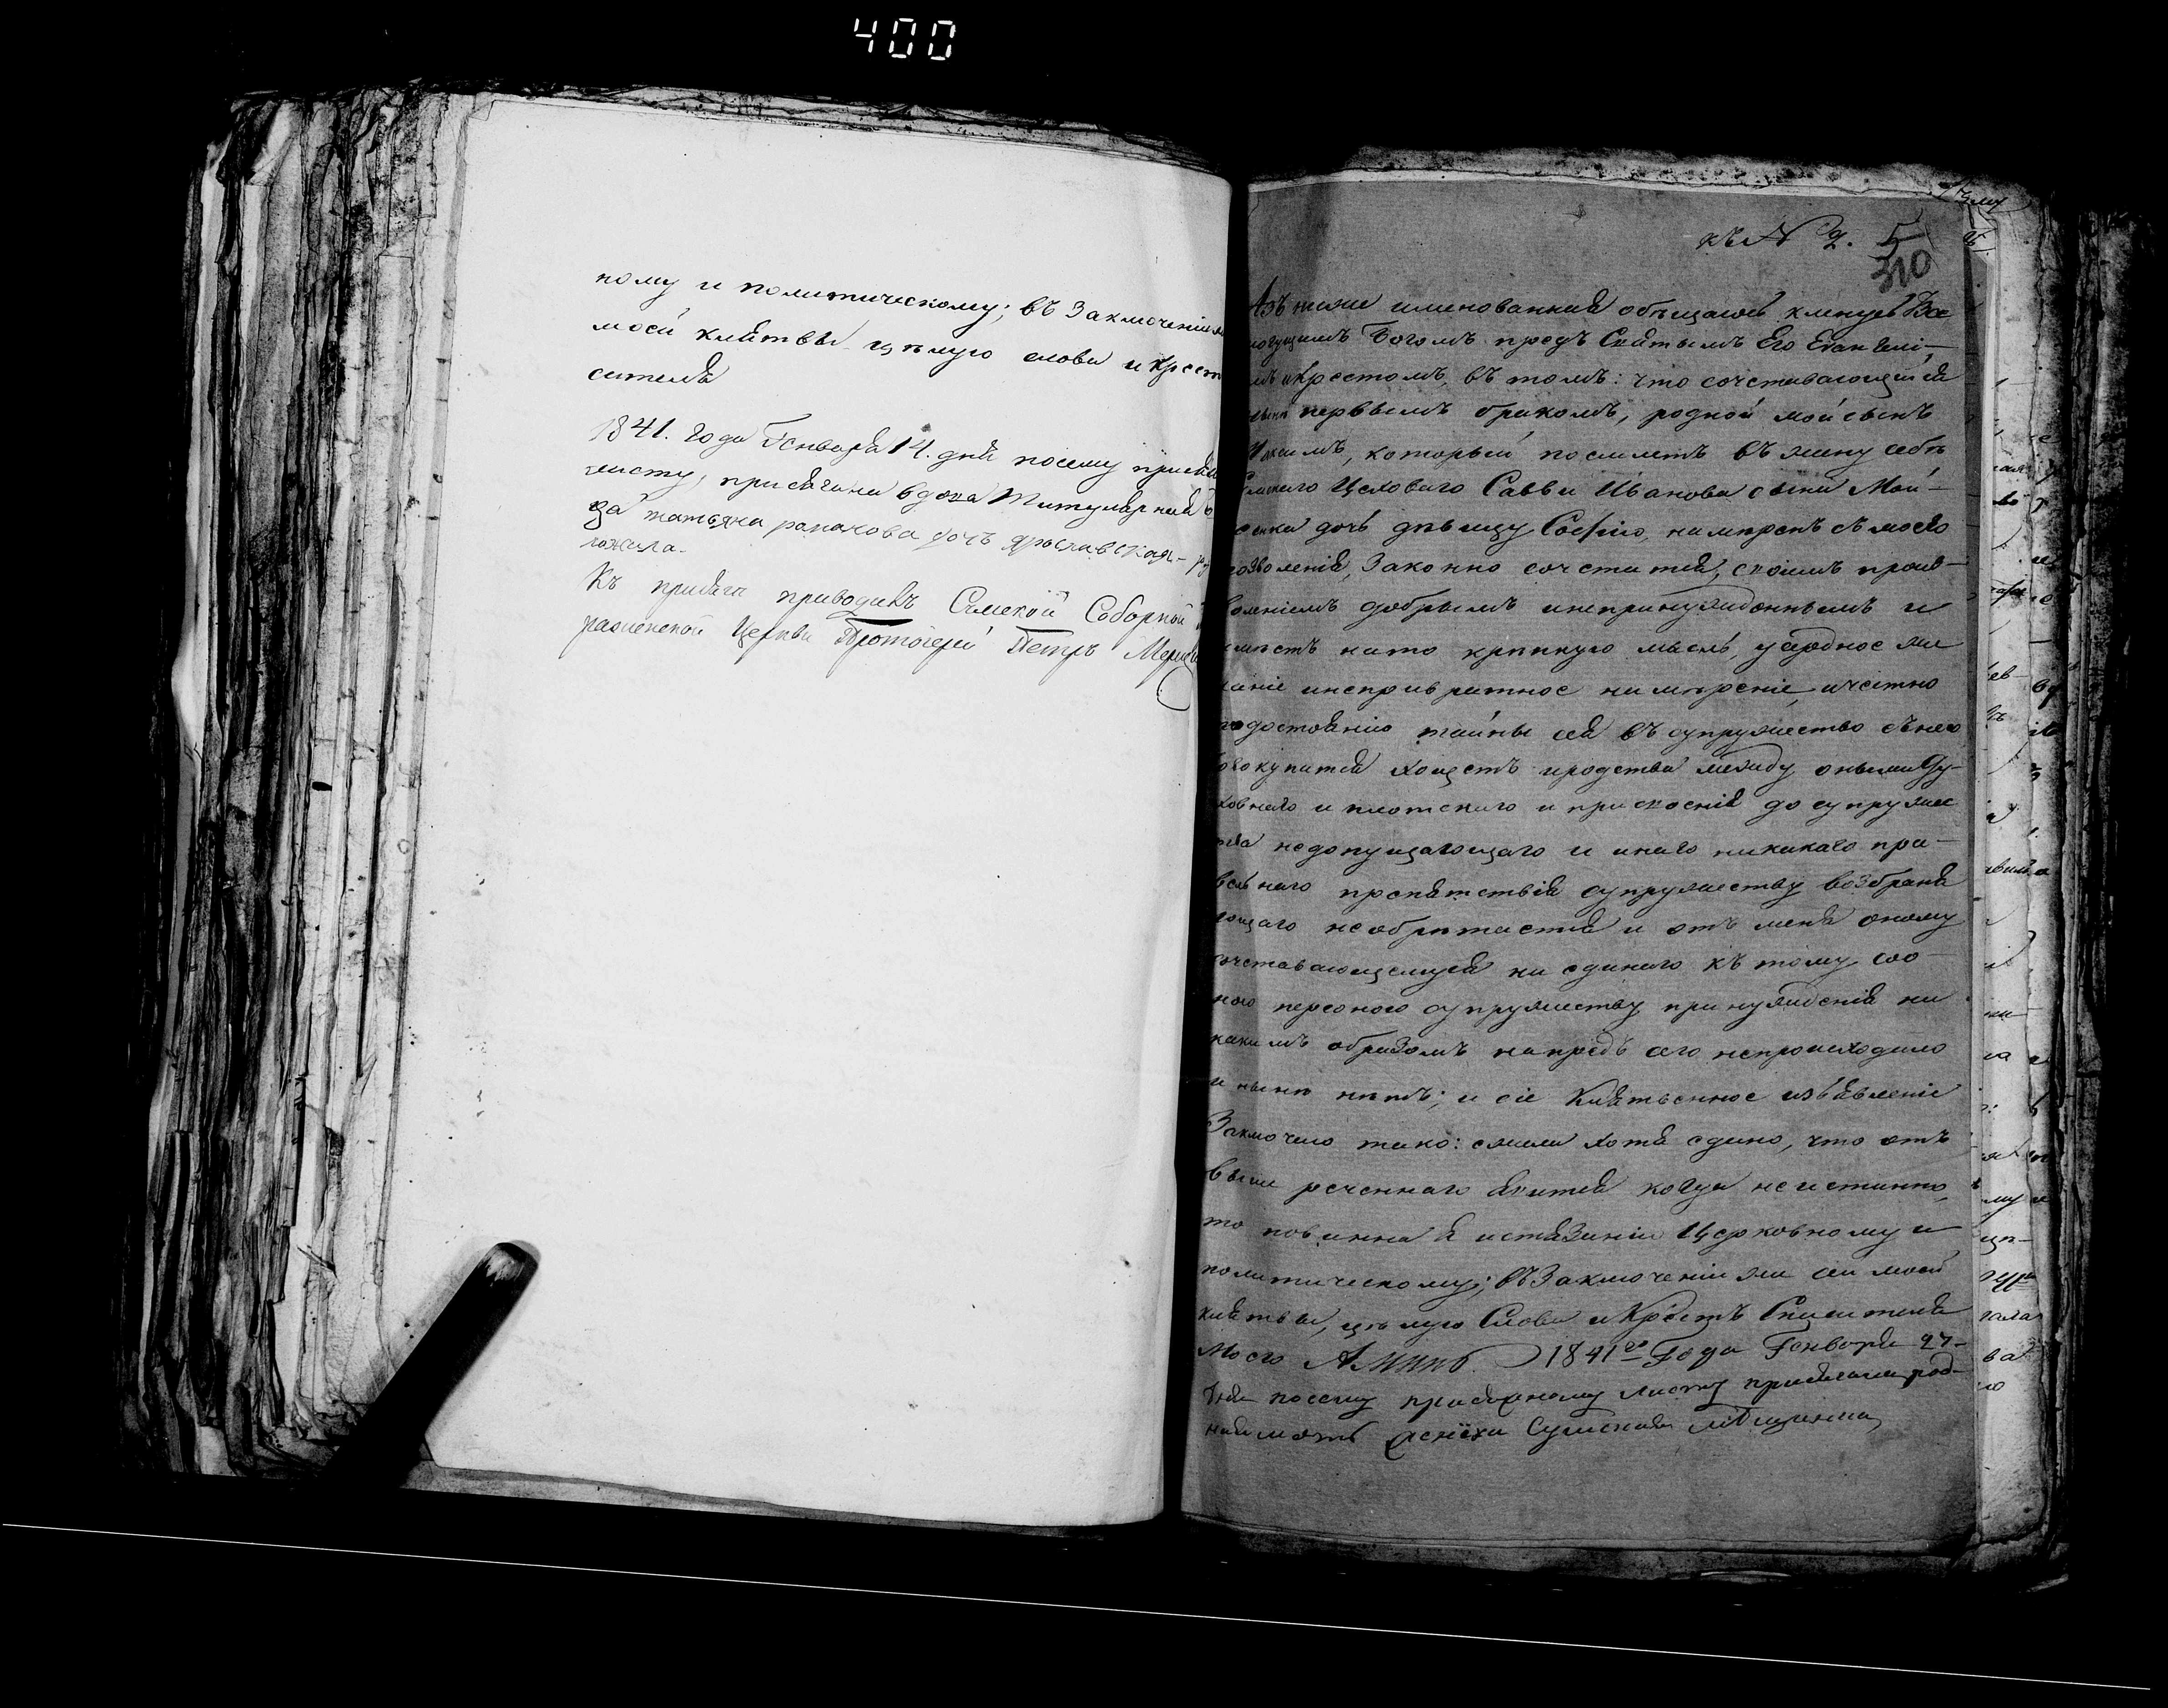 400
ному и политическому; въ Заключеніи
моей клятвы цѣлую слова и Крест
сителя
1841. года Генваря 14. дня посему присяж
листу, присягала вдова Титулярнаго
татьяна романова дочь ярославская
К присяге приводилъ Сумской Соборной
раженской Церкви Протоіерей Петръ
къ № 2. 5
310
Азъ ниже именованная обѣщаюсь кленусь Все
могущимъ Богомъ предъ Святымъ Его Евангелі-
мъ и Крестомъ, въ томъ: что сочетавающийся
первымъ бракомъ, родной мой сынъ
Максимъ, который поемлетъ въ жену себѣ
Сумскаго Цеховаго Саввы Иванова сына Мои-
сенка дочь дѣвицу Софію, намѣренъ съ моего
позволенія, Законно сочетатися, своимъ произ-
воленіемъ добрымъ и непринужденнымъ и
имѣетъ на то крѣпкую мысль, усердное же
ланіе и непревратное намѣреніе, и честно
по достоянію тайны сея въ супружество съ нею
совокупитися хощетъ и родства между оными Ду-
ховнаго и плотскаго и присвоенія до супружес
тва недопущающаго и инаго никакаго пра-
вельнаго препятствія супружеству возбраня
ющаго необрѣтается и отъ меня оному
сочетавающемуся ни единаго къ тому со
ною персоною супружеству принужденія ни
какимъ образомъ напредъ сего непроисходило
и нынѣ нѣтъ; и сіе Клятвенное изъявленіе
Заключаю тако: ежели хотя едино, что отъ
выше реченнаго явится когда неистинно,
то повинна я истязанію Церковному и
политическому; въ Заключеніи же сей моей
клятвы, цѣлую Слова и Крестъ Спасителя
Моего Аминь. 1841го Года Генваря 27-
дня посему присяжному листу присягала род-
ная мать Сумская мѣщанка,